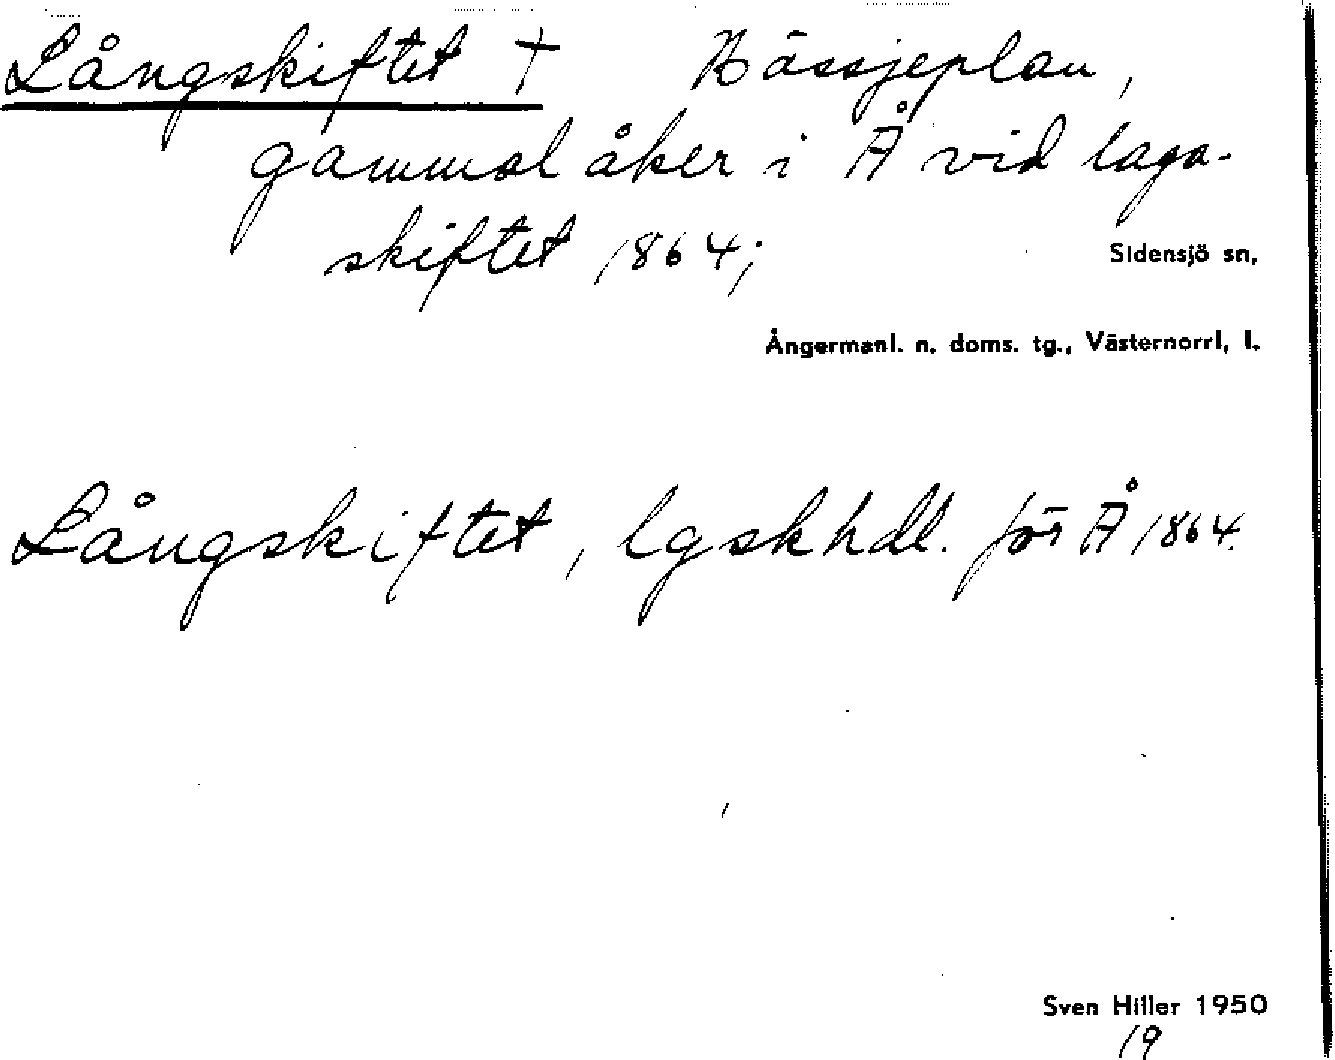 Långskiftet † Hässjeplan,
gammal åker i Å vid laga-
skiftet 1864;
Sidensjö sn,
Ångermanl. n. doms. tg., Västernorrl, l.
Långskiftet, lgskhdl. för Å 1864.
Sven Hiller 1950
19